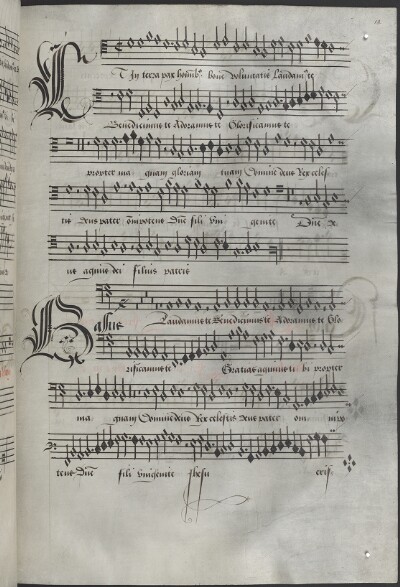 Et In terra pax hominibus bone voluntatis Laudamus te
Benedicimus te Adoramus te Glorificamus te
propter magnam gloriam tuam Domine deus Rex celes
tis deus pater omnipotens Dne fili vni genite Dne de
us agnus dei filius patris
Bassus Laudamus te Benedicimus te Adoramus te Glo
rificamus te Gratias agimus ti bi propter
ma gnam Domine deus Rex celestis deus pater om nipo
tens Dne fili vnigenite Ihesu cris